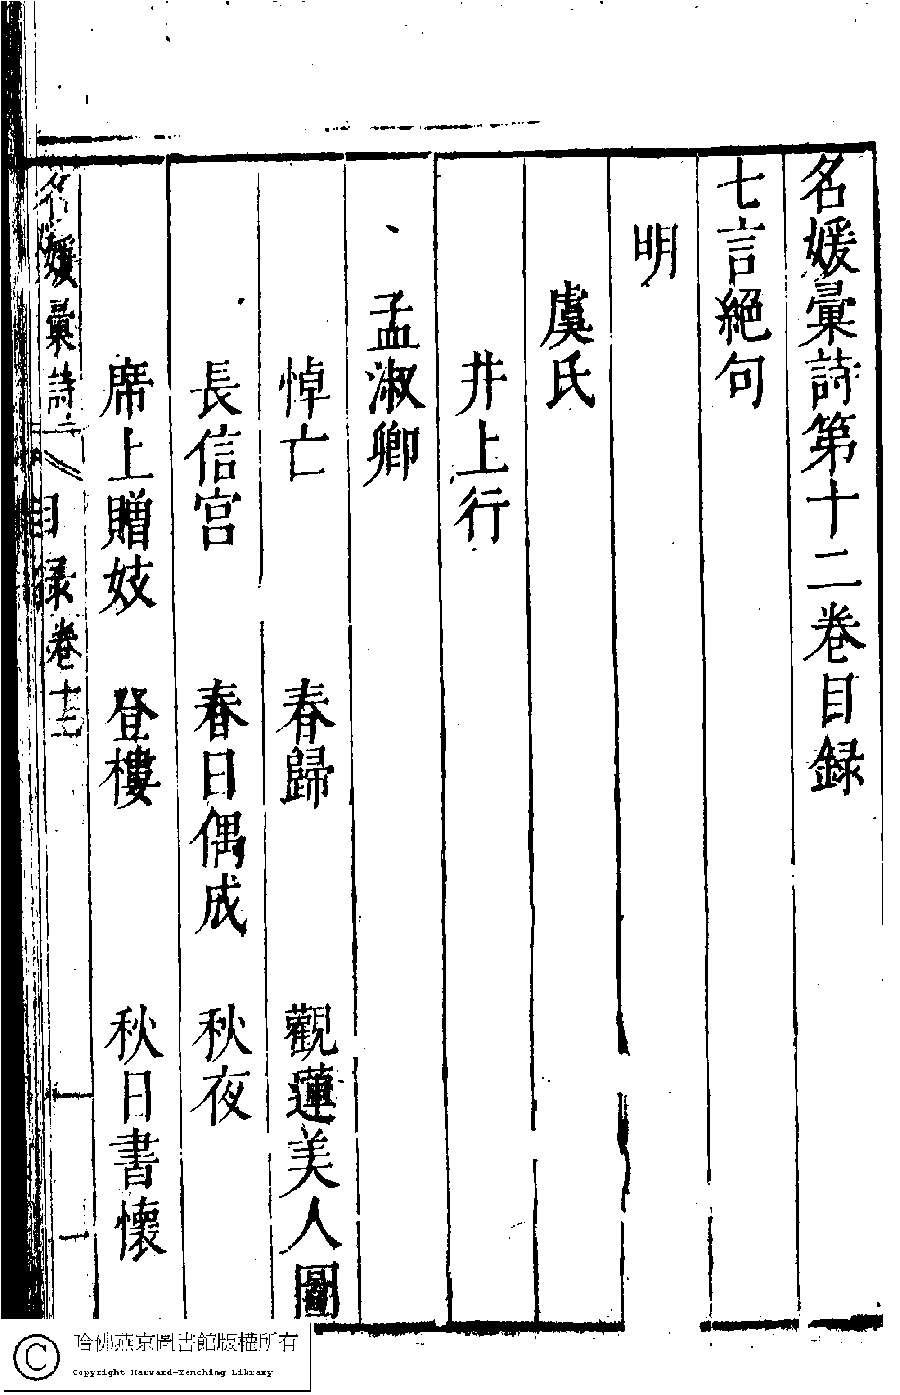 名媛彙詩第十二卷目録
七言絕句
明
虞氏
井上行
孟淑卿
悼亡 春歸 觀蓮美人圖
長信宮 春日偶成 秋夜
席上贈妓 登樓 秋日書懷
名媛彙詩 目録卷十二 一
哈佛燕京圖書館版權所有
Copyright Harvard-Yenching Library